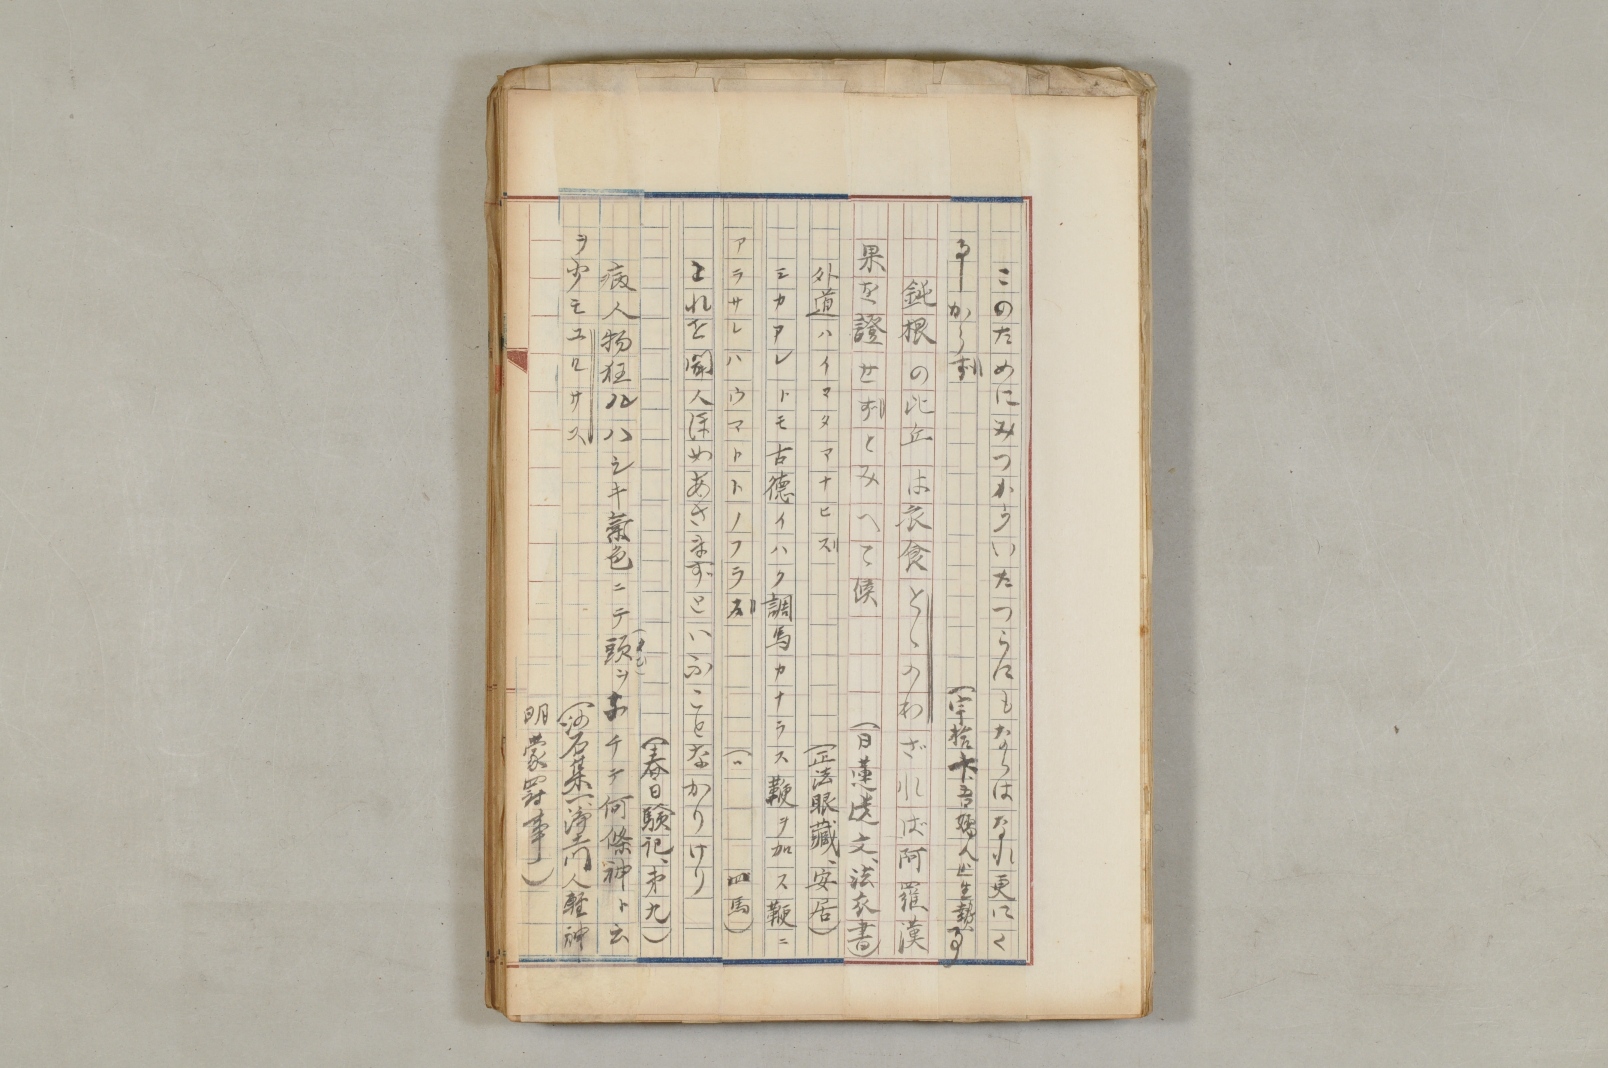 このためにみつかういたつらにもたらはなれ更にく
事しからず
(宇拾六、吾嬬人止生贄事
鈍根の比丘は衣食とゝのわざれば阿羅漢
果を證せずとみへて候
(日蓮遺文、法衣書)
外道ハイマタマナヒズ
(正法眼藏、安居)
ミカアレトモ古徳イハク調馬カナラス鞭ヲ加ス鞭ニ
アラサレハウマトトノフラズ
(〃 四馬)
これを聞人ほめあさまずといふことなかりけり
(春日験記、第九)
病人物狂ハシキ氣色ニテ頭ヲ チテ何條神ト云
ヲ少モユルサス
(沙石集一、浄土門人輕神
明蒙罸事)